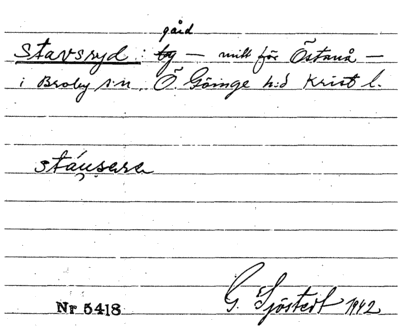 gård
Stavsryd: by — mitt för Östanå —
i Broby s:n, Ö. Göinge h:d Krist l.
stáusara
Nr 5418
G. Sjöstedt 1942